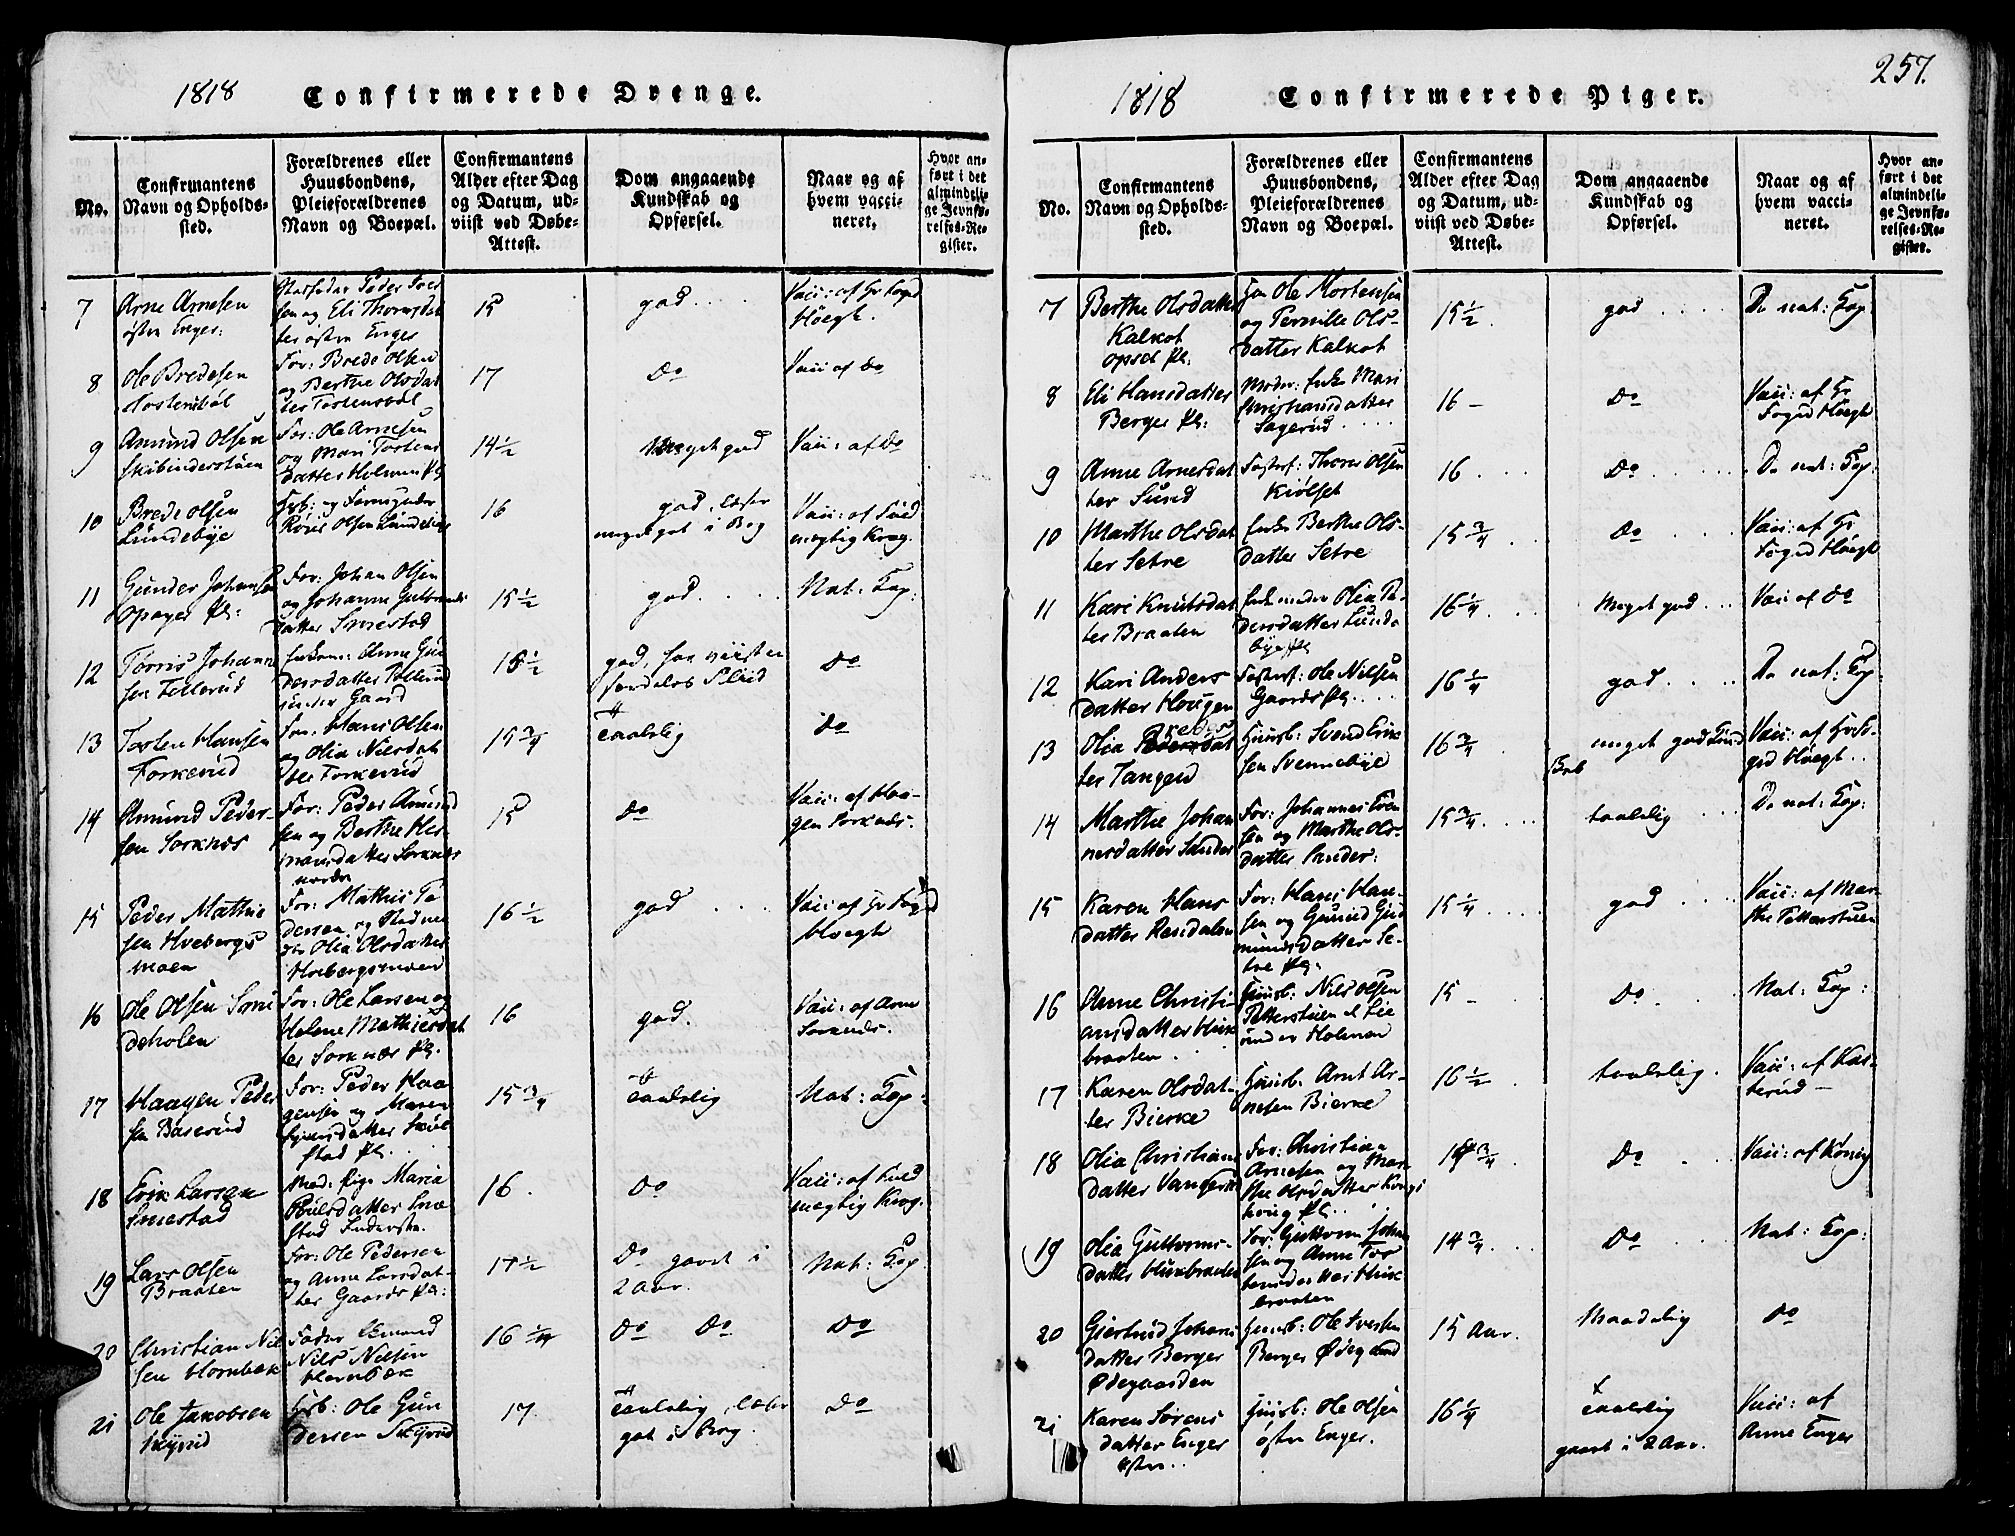 1818 Confirmerede Drenge.
No.
Confirmantens Navn og Opholds-sted.
Forældrenes eller Huusbondens, Pleieforældrenes Navn og Boepæl.
Confirmantens Alder efter Dag og Datum, ud-viist ved Døbe-Attest.
Dom angaaende Kundskab og Opførsel.
Naar og af hvem vacci-neret.
Hvor an-ført i det almindeli-ge Jevnfø-relses-Re-gister.
7
Arne Arnesen
østen Enger:
Peder Iver
sen og Eli Thornsdat
ter østen Enger
15
god . . . .
Vacc: af Hr Foged
Høegh.
8
Ole Bredesen
Tostensbøl
For: Brede Olsen
og Berthe Olsdat
ter Tostensbøl
17
do
Vacc af do
9
Amund Olsen
Skibinderstuen
For: Ole Arnesen
og Mari Tostens
datter Holmen pl
14 1/2
Meget god
Vacc: af do
10
Brede Olsen
Lundebye
Hsb: og
Olsen Lundebye
16
god, læser
meget i Bog
Vacc: af Fuld
mægtig Krog.
11
Gunder Johansen
Opager pl:
For: Johan Olsen
og Johanne Guttorms
datter Smestad
15 1/2
god . . . .
Nat: Kop:
12
Johann
sen Tellerud
Anne Gun
dersdatter Tellerud
under Gaard
15 1/2
god, har viist
Fliid
do
13
Tosten Hansen
Torkerud
For: Hans Olsen
og Olia Nilsdat
ter Torkerud
15 3/4
Taalelig
do
14
Amund Peder-
sen Sorknes
For: Peder Amund
sen og Berthe Her
mansdatter Sorknes
nordre
15
do
Vacc: af Haa-
gen Sorknes.
15
Peder Mathis
sen Hvebergs
moen
For: Mathis Pe
dersen og
Olia Olsdatter
Hvebergsmoen
16 1/2
god . . .
Vacc: af Hr Foged
Høegh
16
Ole Olsen Smi
deholen
For: Ole Larsen og
Helene Mathisdat
ter Sorknæs pl.
16
god.
Vacc: af Arne
Sorknes.
17
Haagen Peder
sen Baserud
For: Peder Haa
gensen og Maren
datter
stad pl.
15 3/4
Taalelig
Nat: Kop:
18
Erik Larsen
Smestad
Mod: Pige Maria
Poulsdatter Sme
stad
16.
do
Vacc: af Fuld
mægtig Krog.
19
Lars Olsen
Braaten
For: Ole Pedersen
og Anne Larsdat-
ter Gaards pl:
17 1/2
do gaaet i
2 Aar.
Nat: Kop.
20
Christian Nil
sen Hornbæk
Fader
Nils Nilsen
Hornbæk
16 1/4
do do
do
21
Ole Jakobsen
Skyrud
Hsb: Ole Gun
dersen Skyrud
17
Taalelig, læser
got i Bog.
do
257.
1818 Confirmerede Piger.
No.
Confirmantens Navn og Opholds-sted.
Forældrenes eller Huusbondens, Pleieforældrenes Navn og Boepæl.
Confirmantens Alder efter Dag og Datum, ud-viist ved Døbe-Attest.
Dom angaaende Kundskab og Opførsel.
Naar og af hvem vacci-neret.
Hvor an-ført i det almindeli-ge Jevnfø-relses-Re-gister.
7
Berthe Olsdatter
Kalkot
Opset pl:
For Ole Mortensen
og Pernille Ols-
datter Kalkot
15 1/2
god . . . .
De nat: Kop
8
Eli Hansdatter
Berger pl:
Moder: Enke Mari
Christiansdatter
Sagerud . . . .
16 -
do
Vacc: af Hr
Foged Høegh
9
Anne Arnesdat
ter Sund
Fosterf: Thore Olsen
Kiølset
16
do
De nat: Kop:
10
Marthe Olsdat
ter Setre
Enke Berthe Ols-
datter Setre
15 3/4
do
Vacc: af Hr
Foged Høegh
11
Kari Knutsdat
ter Braaten
Olia Pe-
dersdatter Lunde
bye pl
16 1/4
Meget god . . .
Vacc af do
12
Kari Anders
datter Hougen
Fosterf: Ole Nilsen
Gaards pl: . . .
16 1/4
god . . . .
De nat: Kop:
13
Olia Bredes
dat
ter Tangen
Huusb: Svend Erik
sen Svennebye
16 3/4
meget god
Vacc: af Hr Fo-
ged Høegh . .
14
Marthe Johan
nesdatter Sander
For: Johannes Iver
sen og Marthe Ols-
datter Sander:
15 3/4
taalelig . .
De nat: Kop:
15
Karen Hans
datter Rendalen
For: Hans Han-
sen og Gunild Gud
mundsdatter Se-
tre pl.
15 1/4
god
Vacc: af Mar
the Petterstuen
16
Anne Christi-
ansdatter Husk
braaten . .
Huusb: Nils Olsen
Petterstuen
under Holmen
15 -
do
Nat: Kop:
17
Karen Olsdat-
ter Bierke
Huusb: Arnt Ar-
nesen Bierke
16 1/2
taalelig.
Vacc: af Kas-
terud -
18
Olia Christians
datter Vangerud
For: Christian
Arnesen og Mar
the Olsdatter Kongs
houg pl. . .
14 3/4
do
Vacc: af Konig
19
Olia Guttorms-
datter Huskbraaten
For: Guttorm Johan
sen og Anne Tos
tensdatter Husk
braaten
14 3/4
do
Nat: Kop:
20
Giertrud Johans
datter Berger
Ødegaarden
Huusb: Ole Iversen
Berger Ødegaard
15 Aar.
Maadelig
do
21
Karen Sørens
datter Enger
østen . .
Huusb: Ole Olsen
østen Enger.
16 1/4
Taalelig
gaaet i 2 Aar.
Vacc: af
Anne Enger